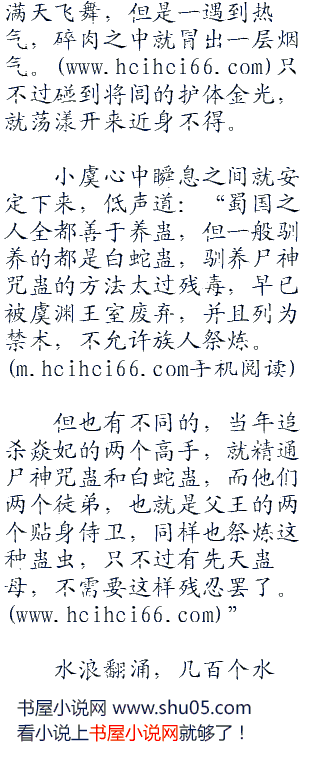 满天飞舞，但是一遇到热
气，碎肉之中就冒出一层烟
气。(www.hcihci66.com)只
不过碰到将闾的护体金光，
就荡漾开来近身不得。
小虞心中瞬息之间就安
定下来，低声道：“蜀国之
人全都善于养蛊，但一般驯
养的都是白蛇蛊，驯养尸神
咒蛊的方法太过残毒，早已
被虞渊王室废弃，并且列为
禁术，不允许族人祭炼。
(m.hcihci66.com手机阅读)
但也有不同的，当年追
杀焱妃的两个高手，就精通
尸神咒蛊和白蛇蛊，而他们
两个徒弟，也就是父王的两
个贴身侍卫，同样也祭炼这
种蛊虫，只不过有先天蛊
母，不需要这样残忍罢了。
(www.hcihci66.com)”
水浪翻涌，几百个水
书屋小说网 www.shu05.com
看小说上书屋小说网就够了！